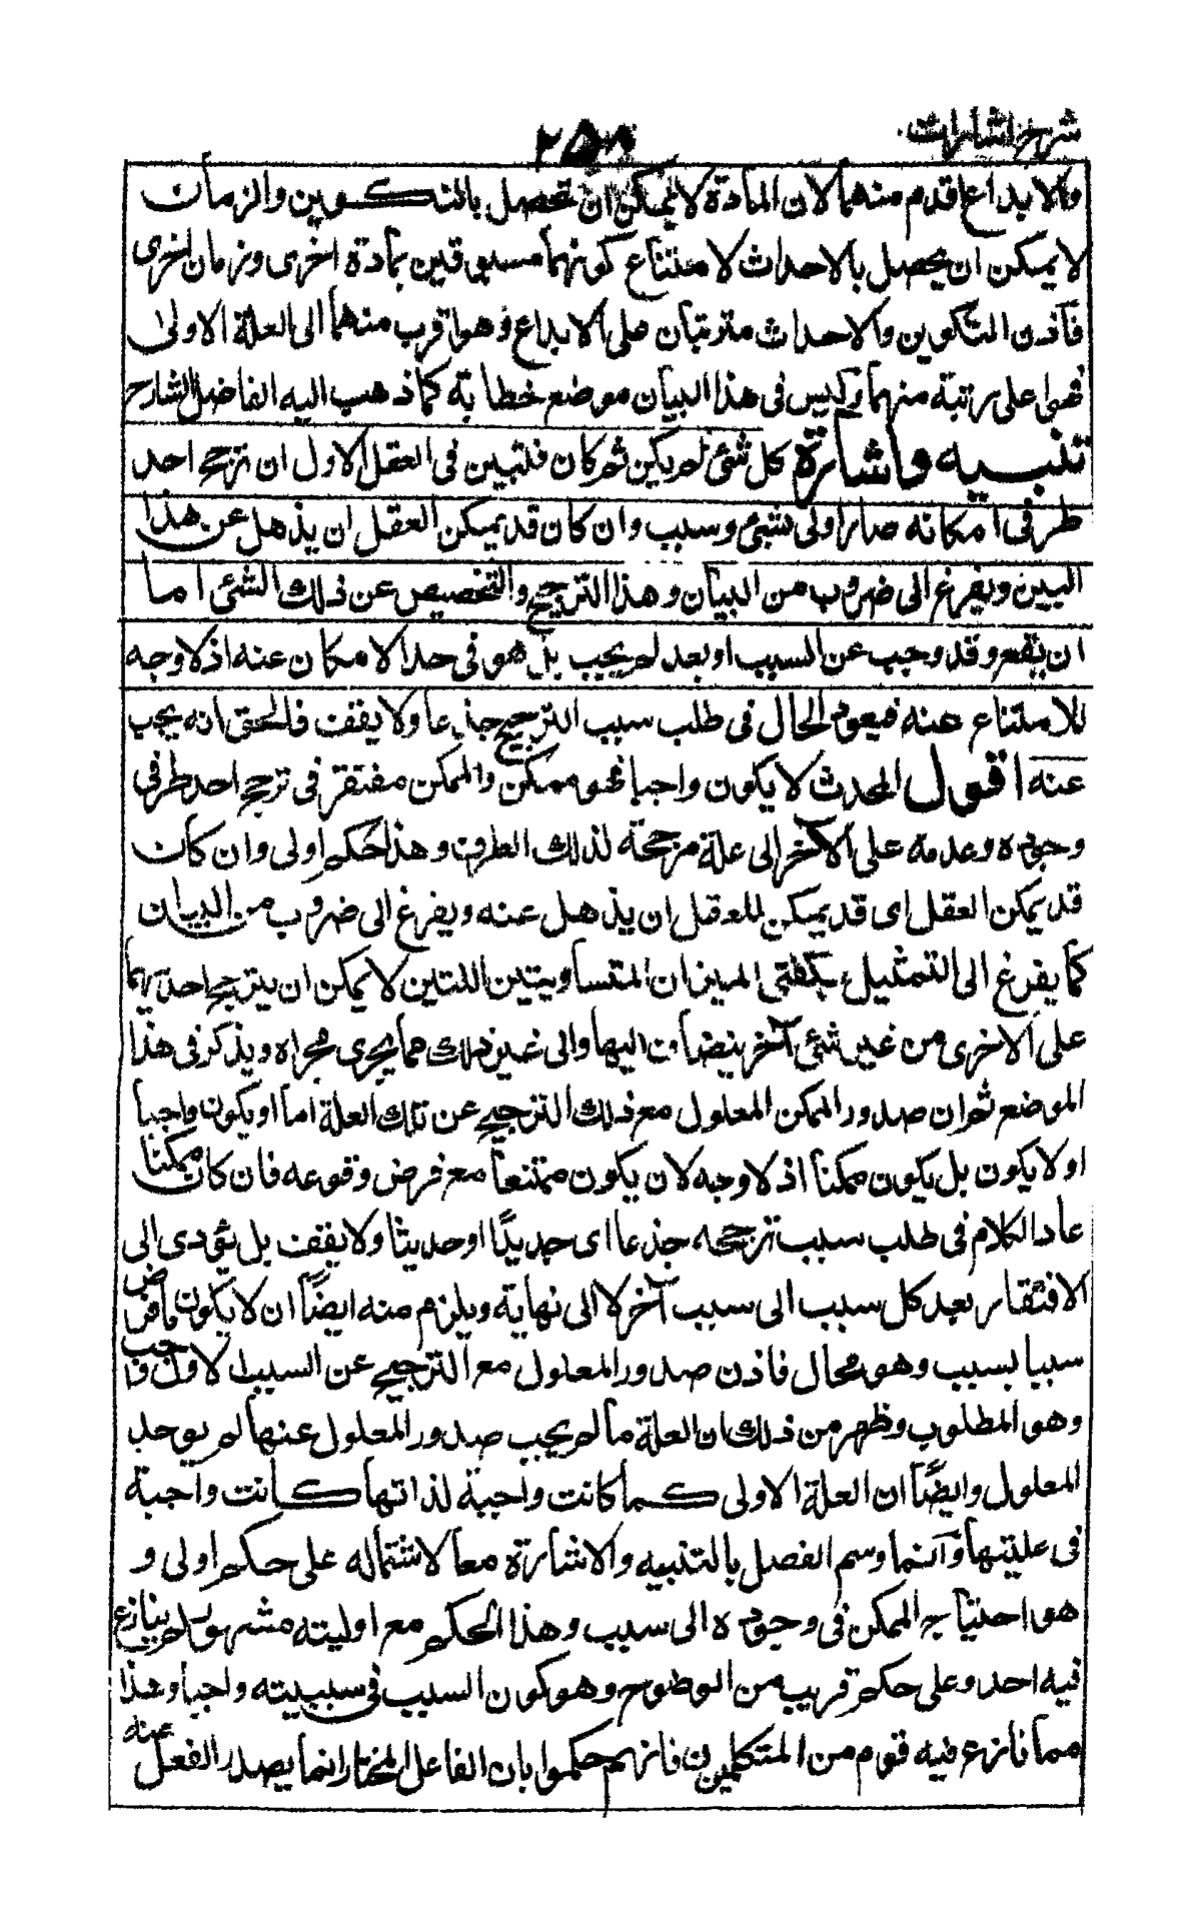 شرح اشارات
٢٥٨
والابداع اقدم منهما لان المادة لا يمكن ان تحصل بالتكوين والزمان
لا يمكن ان يحصل بالاحداث لامتناع كونهما مسبوقين بمادة اخرى وزمان اخرى
فاذن التكوين والاحداث مترتبان على الابداع وهو اقرب منهما الى العلة الاولى
فهو اعلى رتبة منهما وليس فى هذا البيان موضع خطابة كما ذهب اليه الفاضل الشارح
تنبيه واشارة كل شئ لم يكن ثم كان فتبين فى العقل الاول ان ترجح احد
طرفى امكانه صار اولى بشئ وسبب وان كان قد يمكن العقل ان يذهل عن هذا
البين ويفزع الى ضروب من البيان وهذا الترجيح والتخصيص عن ذلك الشئ اما
ان يقع وقد وجب عن السبب او بعد لم يجب بل هو فى حد الامكان عنه اذ لا وجه
للامتناع عنه فيعود الحال فى طلب سبب الترجيح جذعا ولا يقف فالحق انه يجب
عنه اقول المحدث لا يكون واجبا فهو ممكن والممكن مفتقر فى ترجح احد طرفى
وجوده وعدمه على الآخر الى علة مرجحة لذلك الطرف وهذا حكم اولى وان كان
قد يمكن العقل اى قد يمكن للعقل ان يذهل عنه ويفزع الى ضروب من البيان
كما يفزع الى التمثيل بكفتى الميزان المتساويتين اللتين لا يمكن ان يترجح احديهما
على الاخرى من غير شئ آخر ينضاف اليها والى غير ذلك مما يجرى مجراه ويذكر فى هذا
الموضع ثم ان صدور الممكن المعلول مع ذلك الترجيح عن تلك العلة اما او يكون واجبا
او لا يكون بل يكون ممكنا اذ لا وجه لان يكون ممتنعا مع فرض وقوعه فان كان ممكنا
عاد الكلام فى طلب سبب ترجحه جذعا اى جديدًا او حديثا ولا يقف بل يؤدى الى
الافتقار بعد كل سبب الى سبب آخر لا الى نهاية ويلزم منه ايضًا ان لا يكون ما فرض
سببا بسبب وهو محال فاذن صدور المعلول مع الترجيح عن السبب الاول واجب
وهو المطلوب وظهر من ذلك ان العلة ما لم يجب صدور المعلول عنها لم يوجد
المعلول وايضًا ان العلة الاولى كما كانت واجبة لذاتها كانت واجبة
فى عليتها وانما وسم الفصل بالتنبيه والاشارة معا لاشتماله على حكم اولى و
هو احتياج الممكن فى وجوده الى سبب وهذا الحكم مع اوليته مشهور لم ينازع
فيه احد وعلى حكم قريب من الوضوح وهو كون السبب فى سببيته واجبا وهذا
مما نازع فيه قوم من المتكلمين فانهم حكموا بان الفاعل المختار انما يصدر الفعل عنه